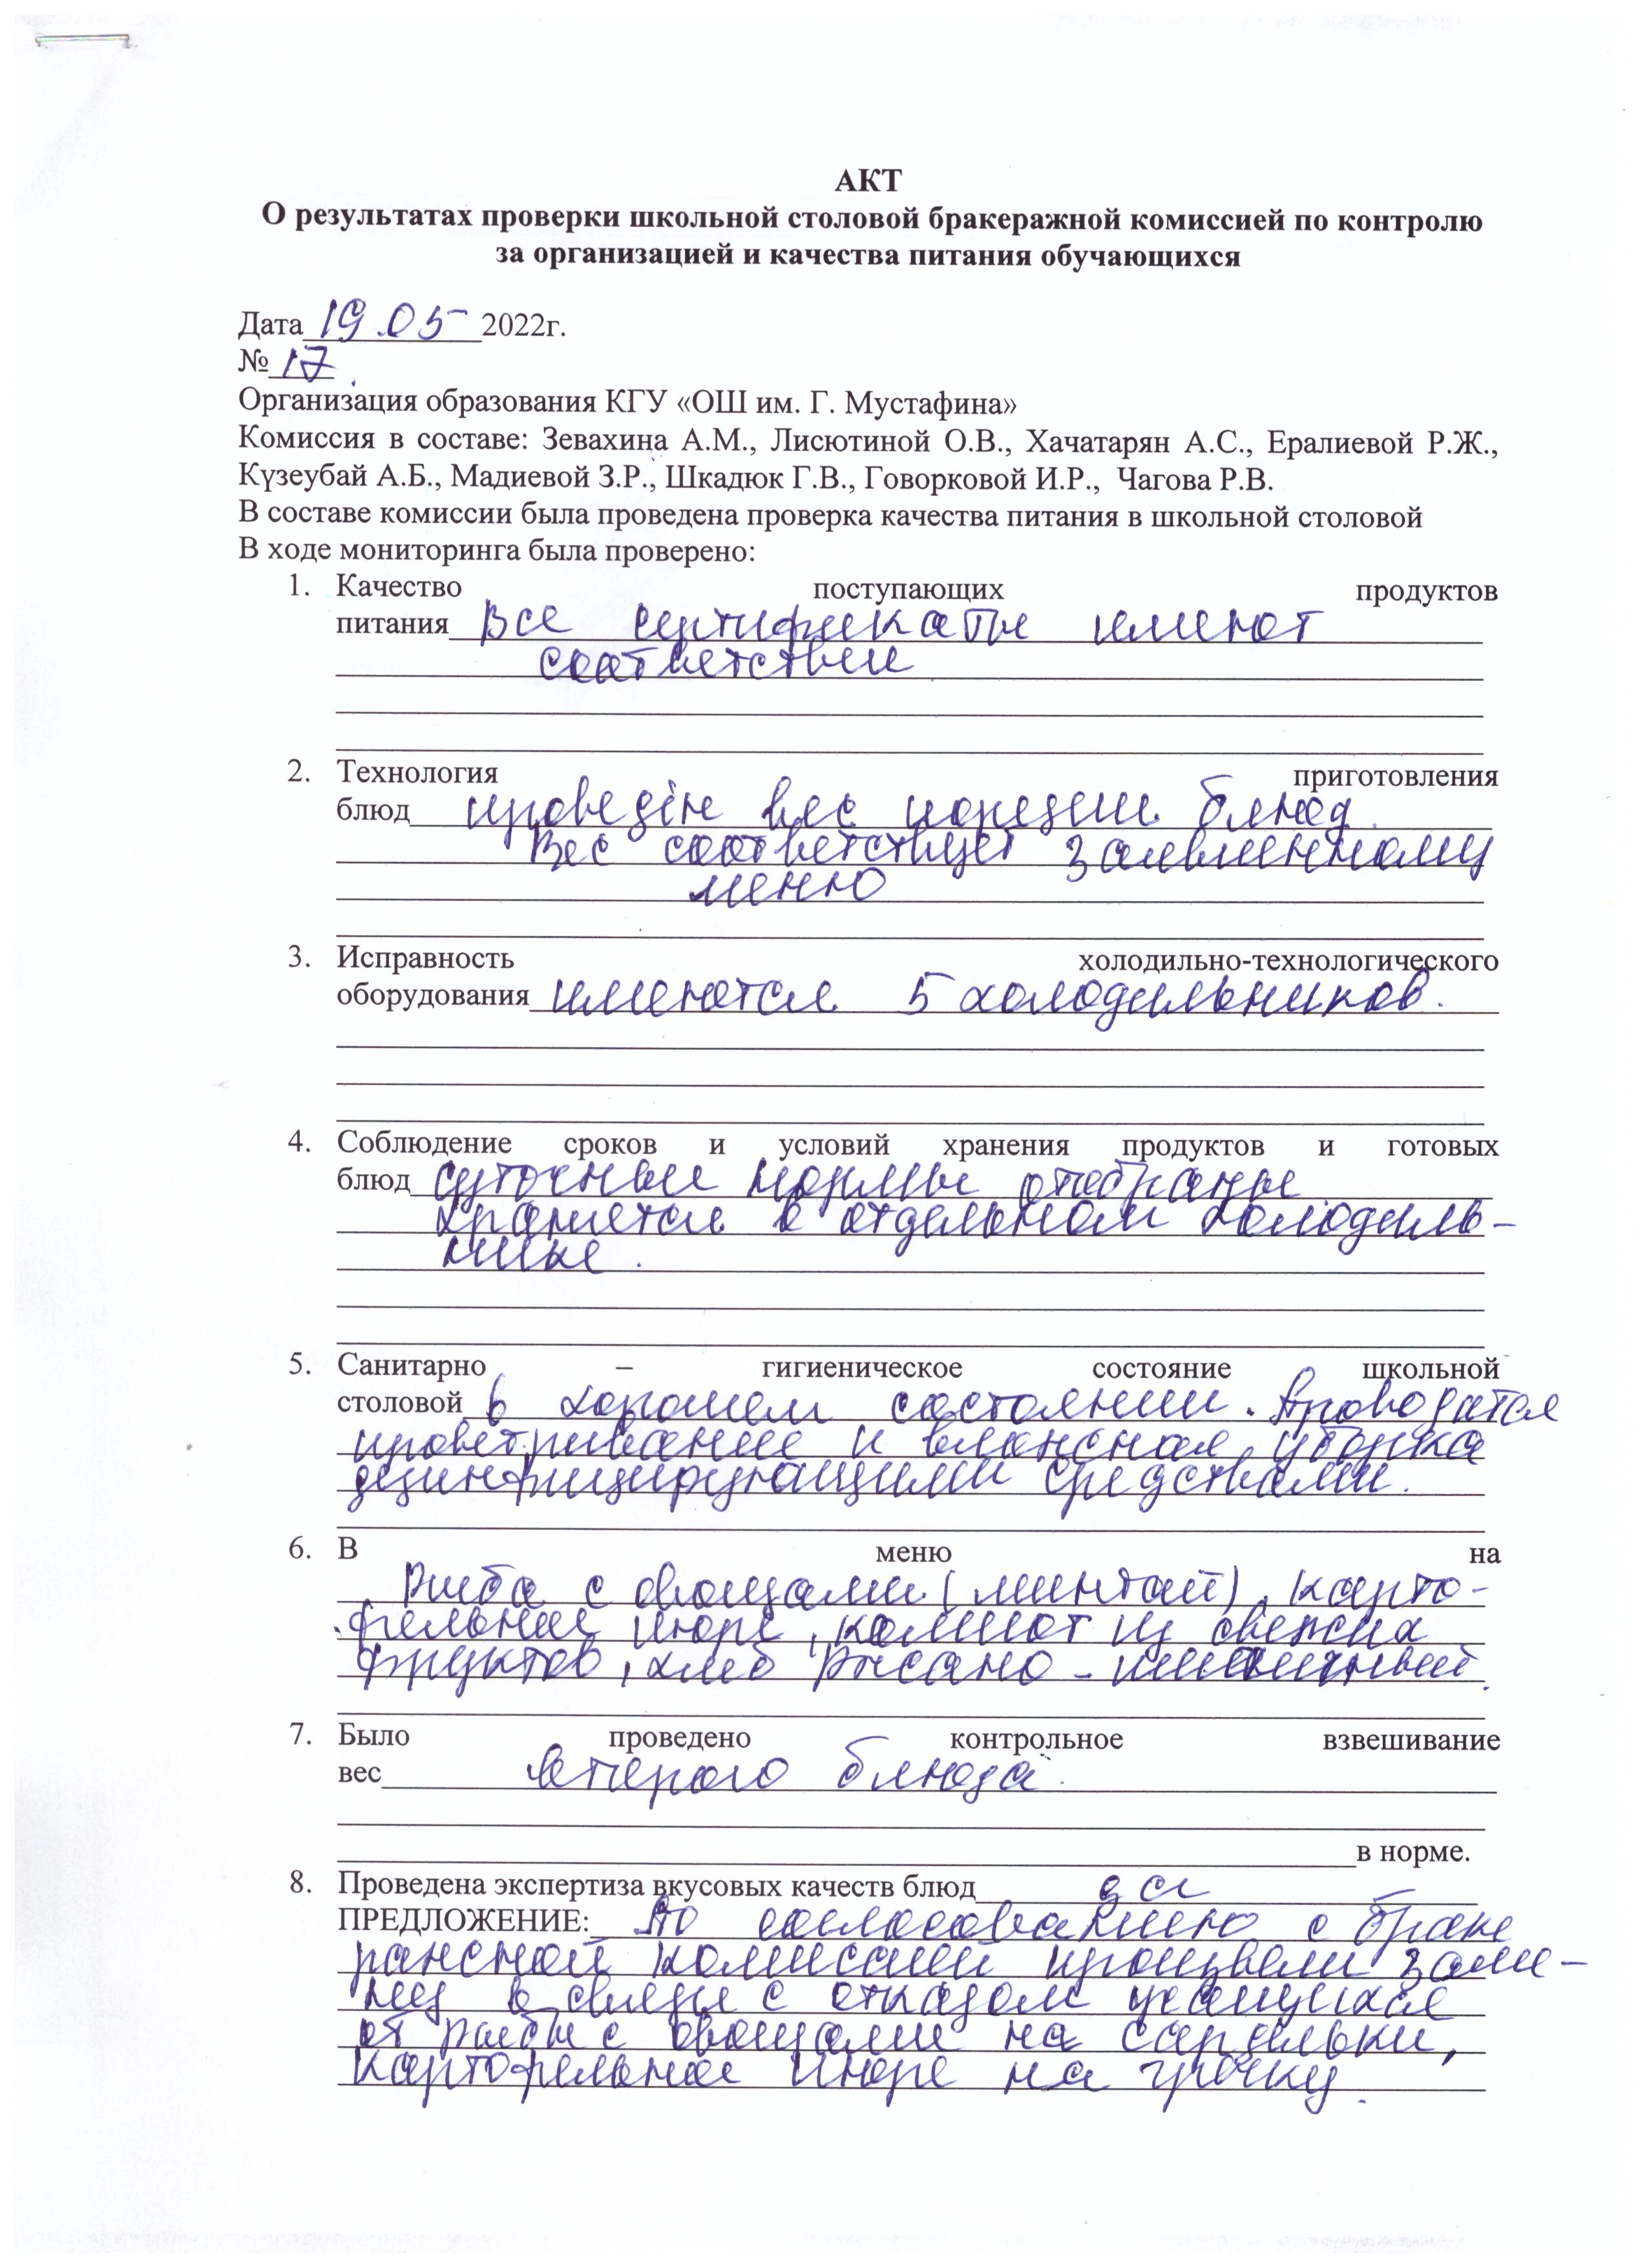 АКТ
О результатах проверки школьной столовой бракеражной комиссией по контролю
за организацией и качества питания обучающихся
Дата 19.05 2022г.
№ 17
Организация образования КГУ «ОШ им. Г. Мустафина»
Комиссия в составе: Зевахина А.М., Лисютиной О.В., Хачатарян А.С., Ералиевой Р.Ж.,
Күзеубай А.Б., Мадиевой З.Р., Шкадюк Г.В., Говорковой И.Р., Чагова Р.В.
В составе комиссии была проведена проверка качества питания в школьной столовой
В ходе мониторинга была проверено:
1. Качество поступающих продуктов
питания Все сертификаты имеют
соответствии
2. Технология приготовления
блюд проведён вес порции блюд.
Вес соответствует заявленному
меню
3. Исправность холодильно-технологического
оборудования имеются 5 холодильников.
4. Соблюдение сроков и условий хранения продуктов и готовых
блюд суточные нормы отобраны.
Хранится в отдельном холодиль-
нике.
5. Санитарно – гигиеническое состояние школьной
столовой в хорошем состоянии. Проводятся
проветривание и влажная уборка
дезинфицирующими средствами.
6. В меню на
Рыба с овощами (минтай), карто-
фельное пюре, компот из свежих
фруктов, хлеб ржано-пшеничный.
7. Было проведено контрольное взвешивание
вес второго блюда.
в норме.
8. Проведена экспертиза вкусовых качеств блюд да
ПРЕДЛОЖЕНИЕ: По согласованию с браке
ражной комиссией произвели заме-
ну в связи с отказом учащихся
от рыбы с овощами на сардельки,
картофельное пюре на гречку.